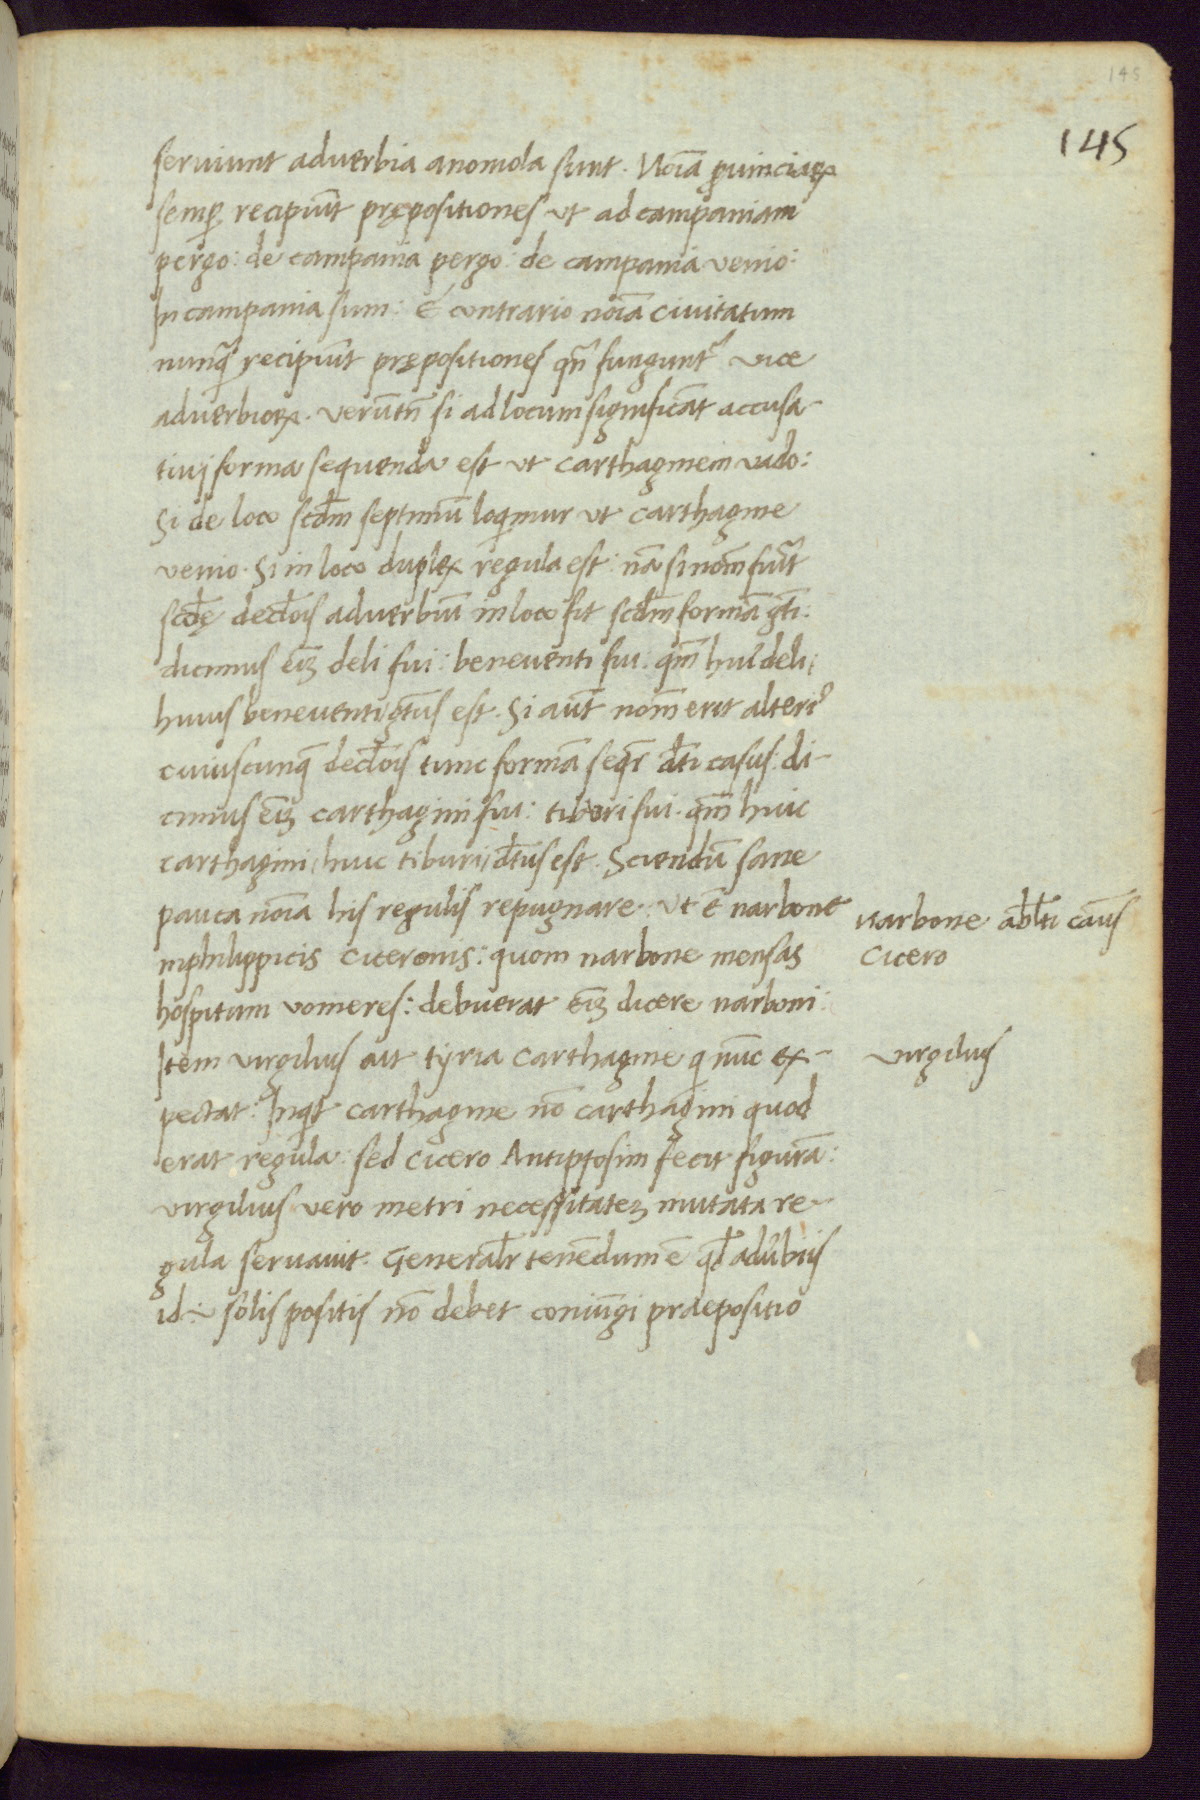 145
145
serviunt adverbia anomola sunt. Noīa ꝓuinciaꝝ
semꝑ recipiūt prępositiones ut ad campaniam
pergo: de campania pergo: de campania venio:
In campania sum: E contrario noīa civitatum
nunq̃ recipiūt prępositiones qñ fungunt᷑ vice
adverbioꝝ. verūtñ si ad locum significāt accusa-
tivi forma sequenda est ut carthaginem vado:
Si de loco scd̄m septimū loqimur ut carthagine
venio. Si in loco duplex regula est: nā si nom̄ fuīt
scd̄ę decl̄ois adverbiū in loco fit scd̄m formā gt̄i:
dicimus em̄ deli fui: beneventi fui: qm̄ hui᷒ deli:
huius beneventi gt̄us est. Si aut̄ nom̄ erit alteri᷒
cuiuscunq̄ decl̄ois tunc formā seqr̄ dt̄i casus: di-
cimus em̄ carthagini fui: tiburi fui. qm̄ huic
carthagini huic tiburi dt̄us est. Sciendū sane
pauca noīa his regulis repugnare. Ut ē narbone
inphilippicis Ciceronis: quom narbone mensas
hospitum vomeres: debuerat em̄ dicere narboni:
Item virgilius ait tyria carthagine qi nūc ex-
pectat: Inqt̄ carthagine nō carthagini quod
erat regula: sed Cicero Antiptosim fecit figurā:
virgilius vero metri necessitatem mutata re-
gula servavit. Generalr̄ tenēdum ē qd̄ adūbiis
id: v solis positis nō debet coniūgi praepositio
narbone abl̄ti cāus
Cicero
virgilius